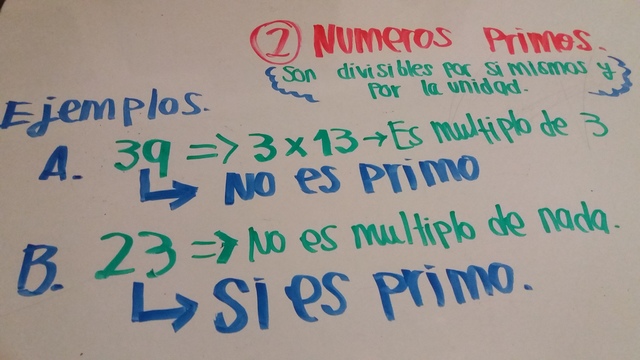 ② NUMEROS PRIMOS.
Son divisibles por si mismos y
por la unidad.
Ejemplos.
A. 39 => 3 x 13 → Es multiplo de 3
NO es primo
B. 23 => No es multiplo de nada.
Si es primo.